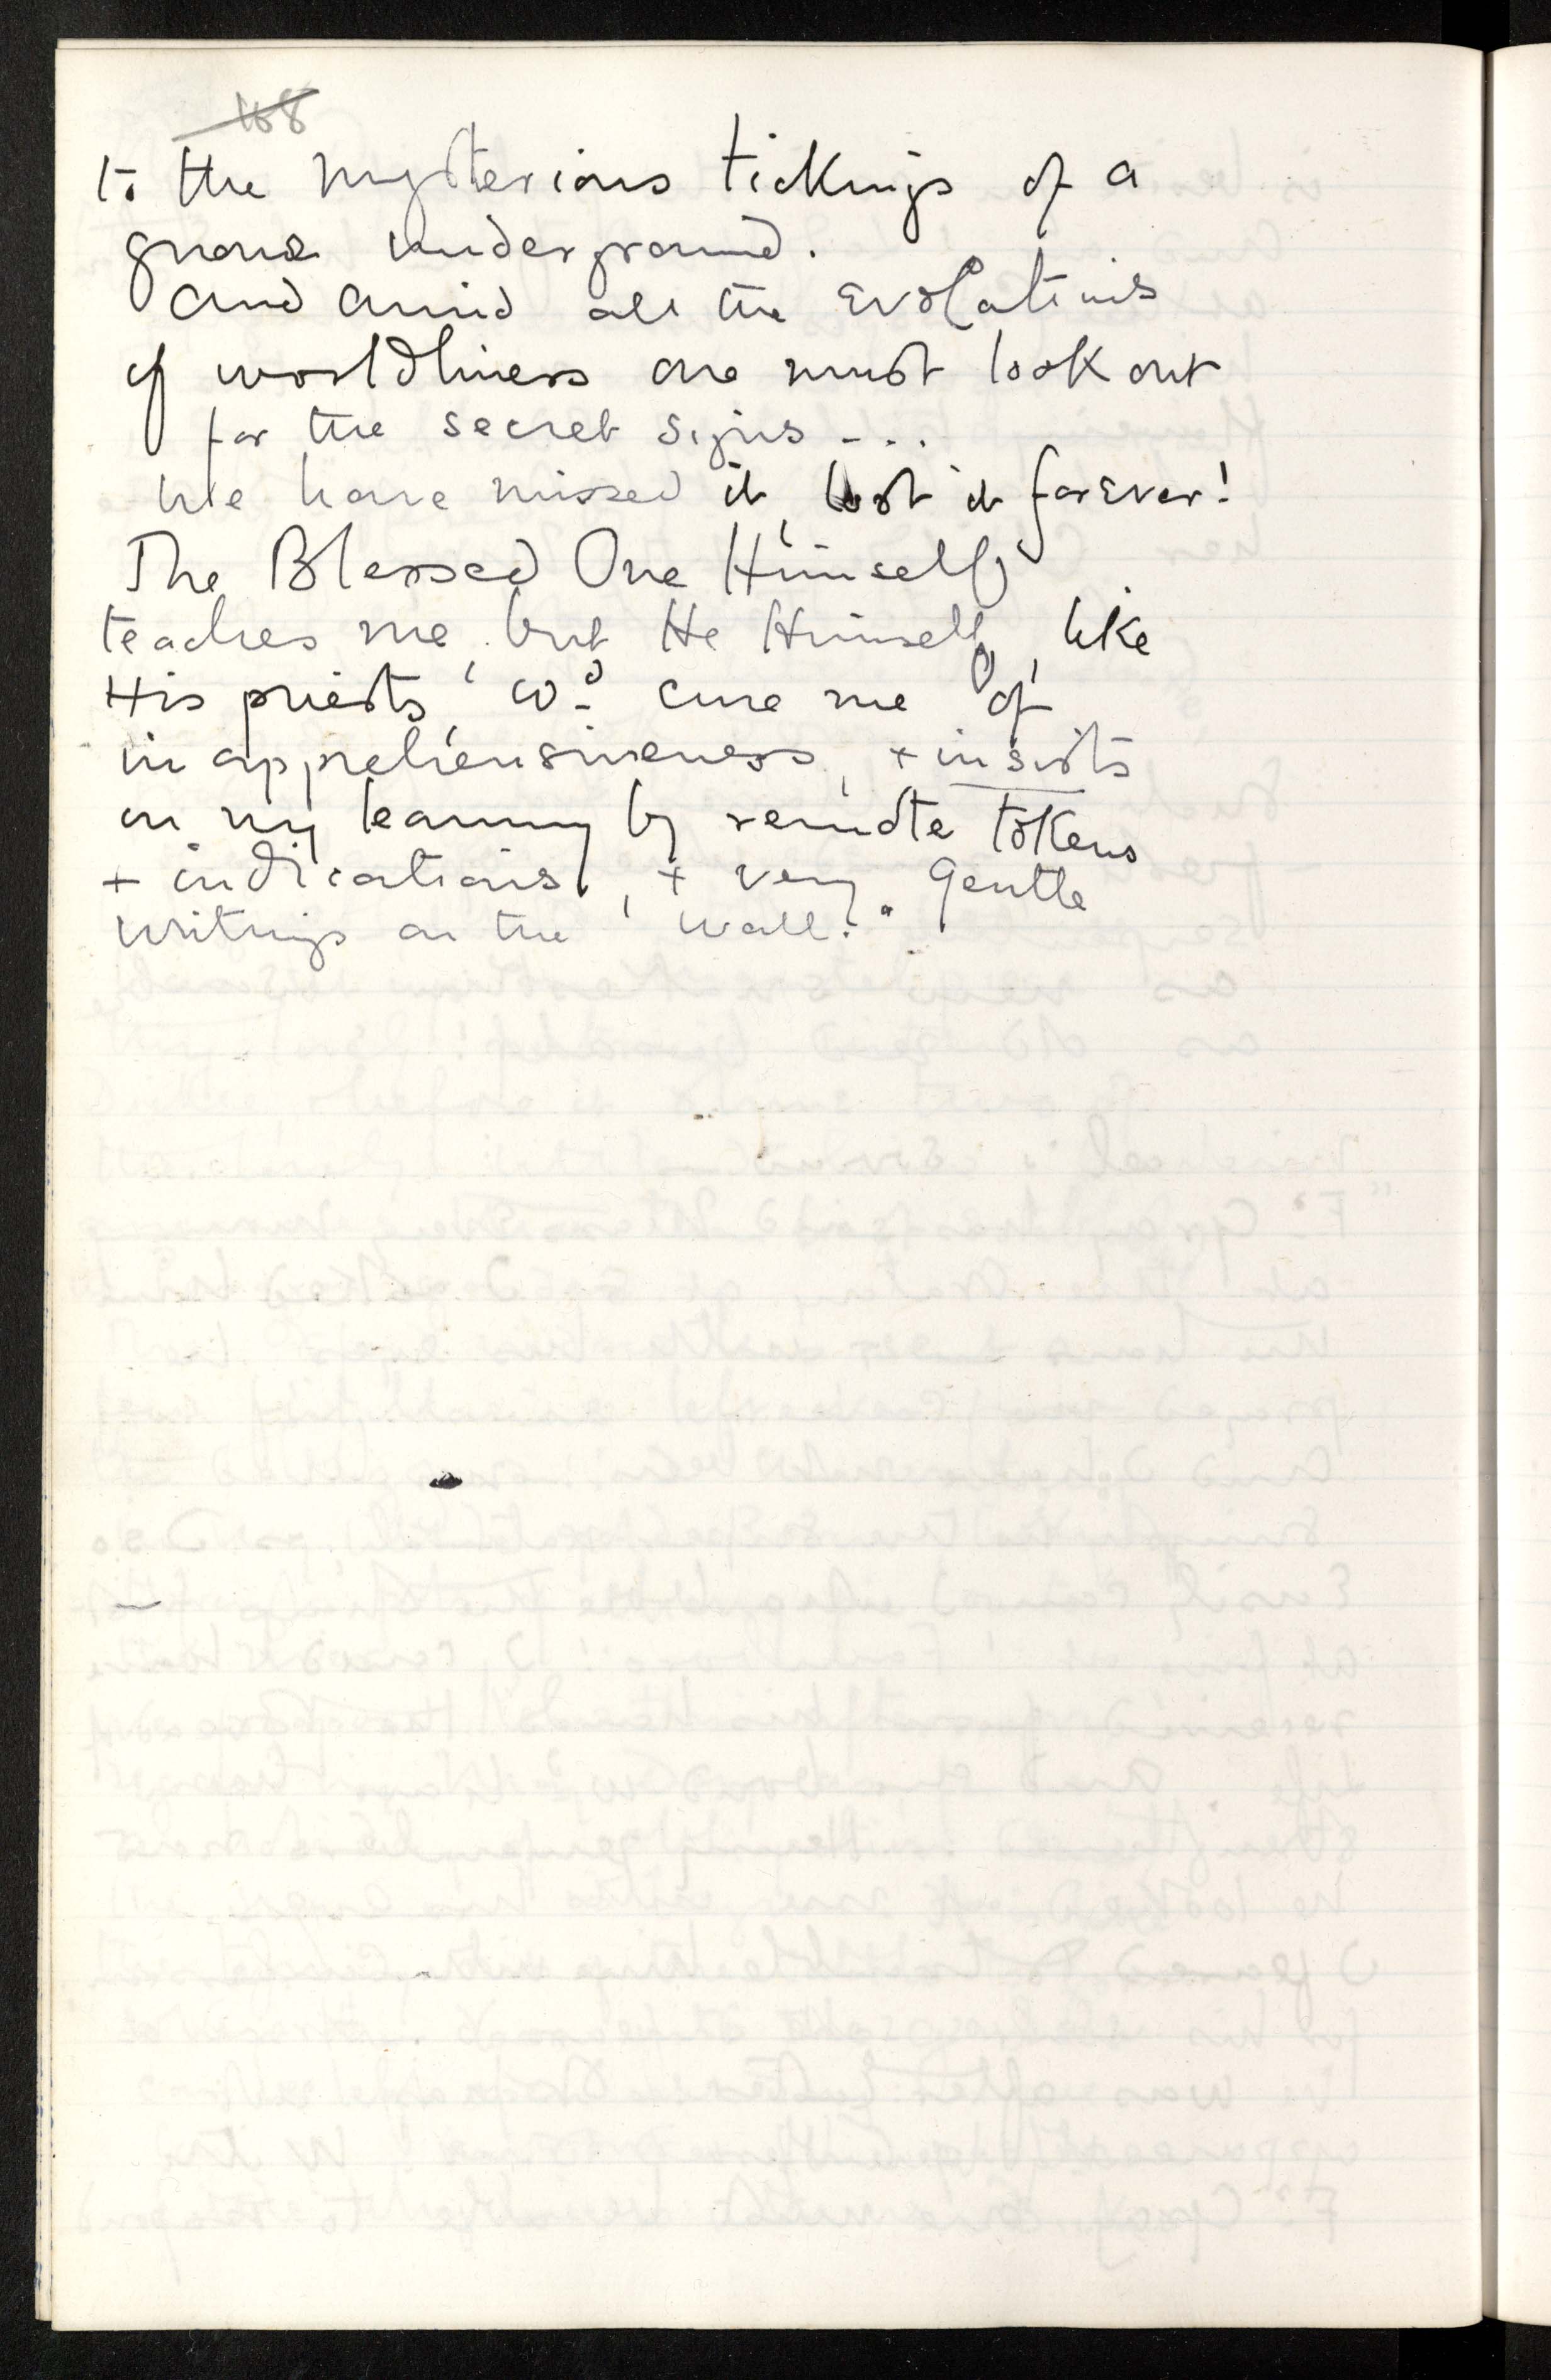 168
to the mysterious tickings of a
gnome underground.
And amid all the Evolutions
of worldliness one must look out
for the secret signs - . .
We have missed it, lost it forever!
The Blessed One Himself
teaches me, but He Himself, like
His priests, wd cure me of
inapprehensiveness, + insists
on my learning by remote tokens
+ indications, + very gentle
writings on the wall.